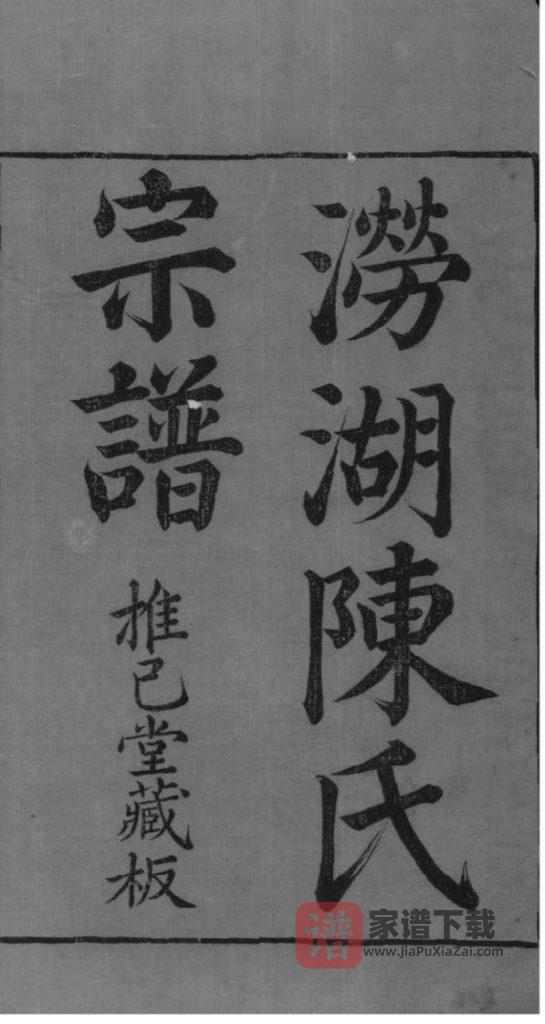 澇湖陳氏
宗譜
推己堂藏板
谱
家谱下载
www.JiaPuXiaZai.com